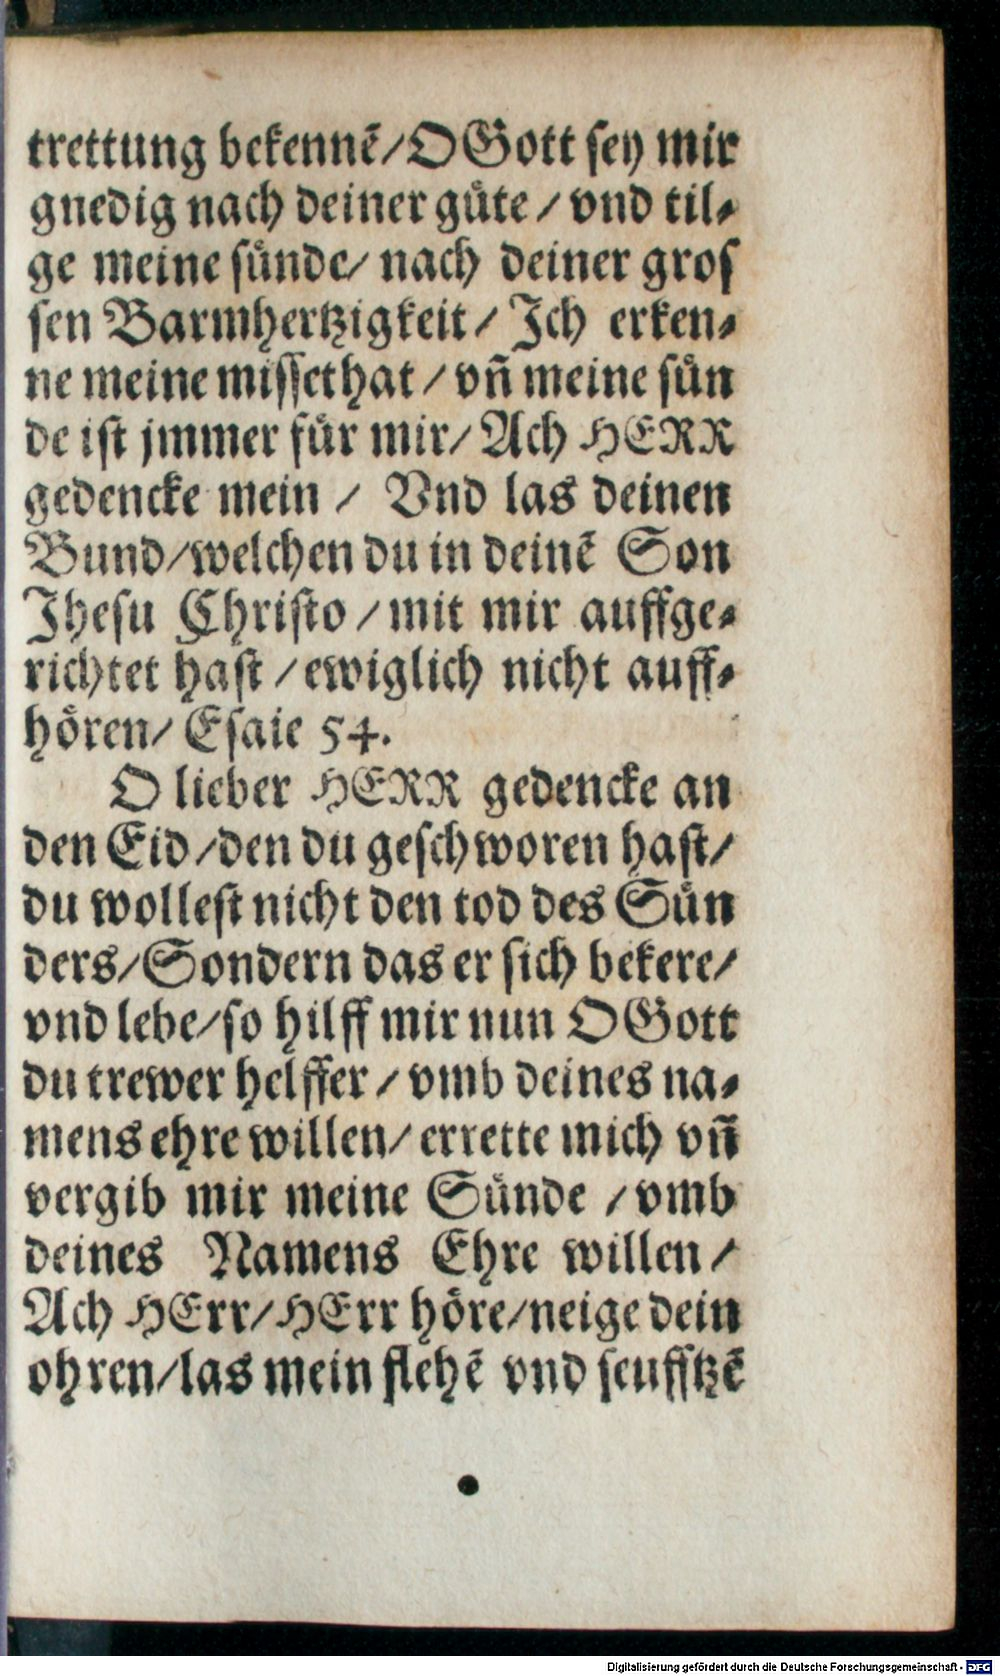 trettung bekennē/O Gott sey mir
gnedig nach deiner guͤte / vnd til⸗
ge meine suͤnde/ nach deiner gros
sen Barmhertzigkeit / Jch erken⸗
ne meine missethat / vn̄ meine suͤn
de ist jmmer fuͤr mir/ Ach HERR
gedencke mein / Vnd las deinen
Bund/welchen du in deinē Son
Jhesu Christo / mit mir auffge⸗
richtet hast / ewiglich nicht auff⸗
hoͤren/ Esaie 54.
O lieber HERR gedencke an
den Eid /den du geschworen hast/
du wollest nicht den tod des Suͤn
ders/Sondern das er sich bekere/
vnd lebe/so hilff mir nun O Gott
du trewer helffer / vmb deines na⸗
mens ehre willen/ errette mich vn̄
vergib mir meine Suͤnde / vmb
deines Namens Ehre willen /
Ach HErr/HErr hoͤre/neige dein
ohren/las mein flehē vnd seufftzē
Digitalisierung gefördert durch die Deutsche Forschungsgemeinschaft - DFG